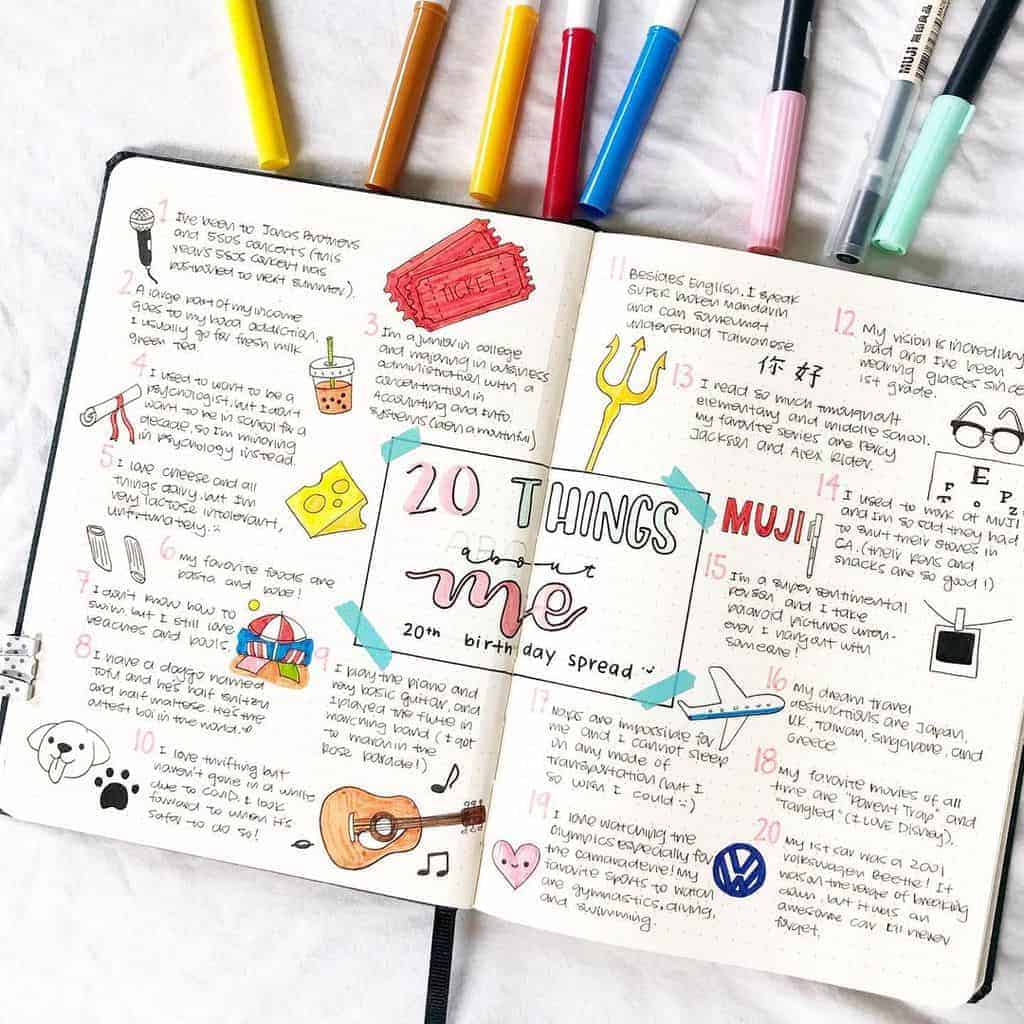 MUJI 無印良品
1
I've been to Jonas Brothers
and 5SOS concerts (this
year's 5SOS concert was
postponed to next summer).
TICKET
2
A large part of my income
goes to my boba addiction,
I usually go for fresh milk
green tea.
3
I'm a junior in college
and majoring in business
administration with a
concentration in
Accounting and Info.
Systems (been a mouthful)
4
I used to want to be a
psychologist, but I don't
want to be in school for a
decade, so I'm minoring
in psychology instead.
5
I love cheese and all
things dairy, but I'm
very lactose intolerant,
unfortunately :(
6
My favorite foods are
pasta and boba!
7
I don't know how to
swim, but I still love
beaches and pools.
8
I have a doggo named
Tofu and he's half shitzu
and half maltese. He's the
cutest boi in the world.
9
I play the piano and
very basic guitar, and
I played the flute in
marching band (I got
to march in the
Rose Parade!)
10
I love thrifting but
haven't gone in a while
due to COVID. I look
forward to when it's
safer to do so!
20 THINGS
ABOUT
about
me
20th birthday spread
11
Besides English, I speak
SUPER broken Mandarin
and can somewhat
understand Taiwanese
你好
12
My vision is incredibly
bad and I've been
wearing glasses since
1st grade.
E
F P
T O Z
13
I read so much throughout
elementary and middle school.
My favorite series are Percy
Jackson and Alex Rider.
14
I used to work at MUJI
and I'm so sad they had
to shut their stores in
CA. (their pens and
snacks are so good!)
MUJI
15
I'm a super sentimental
person and I take
polaroid pictures when-
ever I hang out with
someone!
16
My dream travel
destinations are Japan,
U.K., Taiwan, Singapore, and
Greece
17
Naps are impossible for
me and I cannot sleep
in any mode of
transportation (but I
so wish I could :))
18
My favorite movies of all
time are "Parent Trap" and
"Tangled" (I LOVE Disney).
19
I love watching the
Olympics especially for
the camaraderie! My
favorite sports to watch
are gymnastics, diving,
and swimming.
20
My 1st car was a 2001
Volkswagen Beetle! It
was on the verge of breaking
down, but it was an
awesome car I'll never
forget.
VW